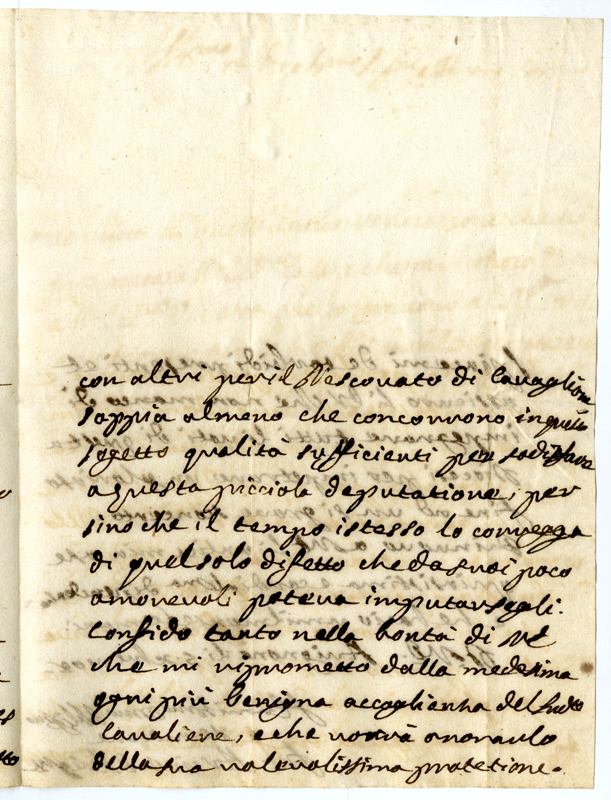 con altri per il Vescovato di Cavaglione
sappia almeno che concorrono in questo
sogetto qualità sufficienti per sodisfare
a questa picciola deputatione, per
sino che il tempo istesso lo corregga
di quel solo difetto che da suoi poco
amorevoli poteva imputarsegli.
Confido tanto nella bontà di VE
che mi riprometto dalla medesima
ogni più benigna accoglienza del sudto
Cavaliere, e che vorrà onorarlo
della sua valevolissima protetione.